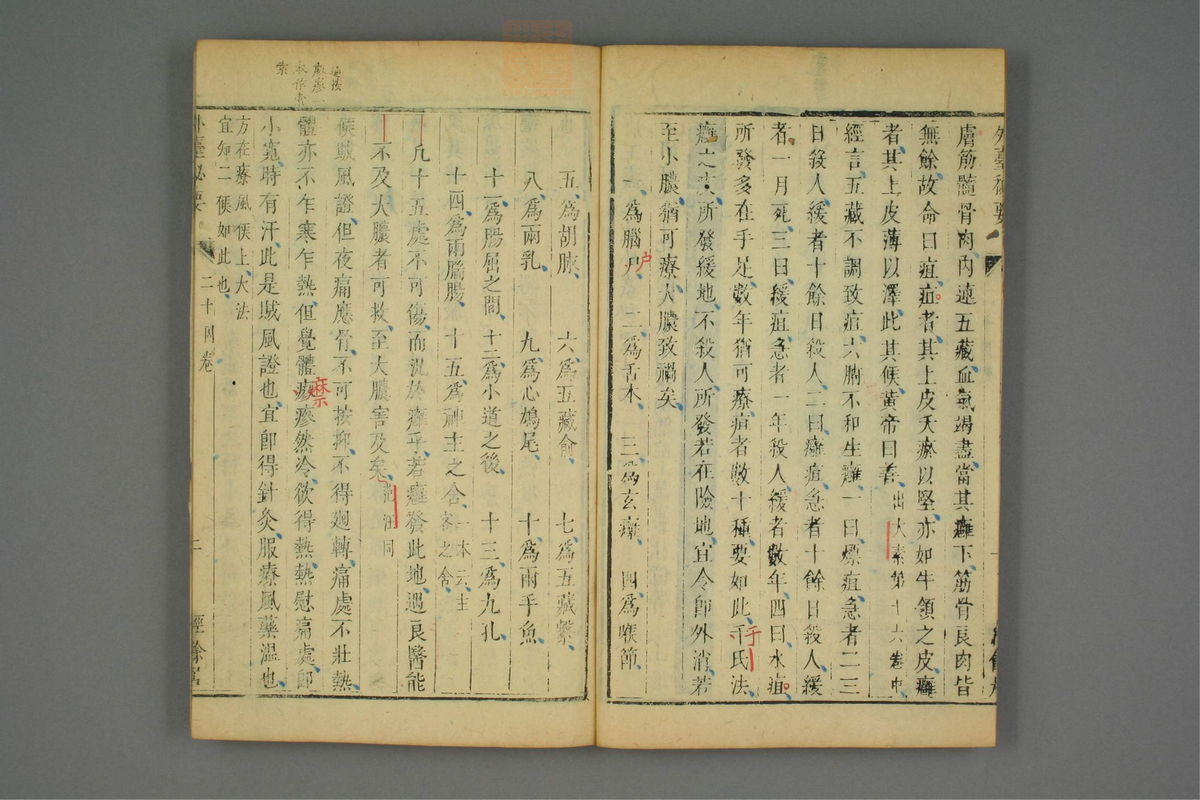 外臺秘要
膚筋髓骨肉內連五藏血氣竭盡當其癰下筋骨良肉皆
無餘故命曰疽疽者其上皮夭瘀以堅亦如牛領之皮癰
者其上皮薄以澤此其候黃帝曰善出太素第十六卷中
經言五藏不調致疽六腑不和生癰一曰熛疽急者二三
日殺人緩者十餘日殺人二曰癰疽急者十餘日殺人緩
者一月死三曰緩疽急者一年殺人緩者數年四曰水疽
所發多在手足數年猶可療疽者數十種要如此千氏法
于
癰之疾所發緩地不殺人所發若在險地宜令即外消若
至小膿猶可療大膿致禍矣
一為腦尸 二為舌本 三為玄癰 四為喉節
户
五為胡脥 六為五藏俞 七為五藏繫
八為兩乳 九為心鳩尾 十為兩手魚
十一為腸屈之間 十二為小道之後 十三為九孔
十四為兩腨腸 十五為神主之舍一本云主客之舍
凡十五處不可傷而況於癰乎若癰發此地遇良醫能
不及大膿者可救至大膿害及矣同
候賊風證但夜痛應骨不可按抑不得迴轉痛處不壯熱
體亦不乍寒乍熱但覺體瘮瘮然冷欲得熱熱慰痛處即
小寬時有汗此是賊風證也宜即得針灸服療風藥溫也
方在療風候上大法宜知二候如此也
外臺秘要 二十四卷 二 經餘居